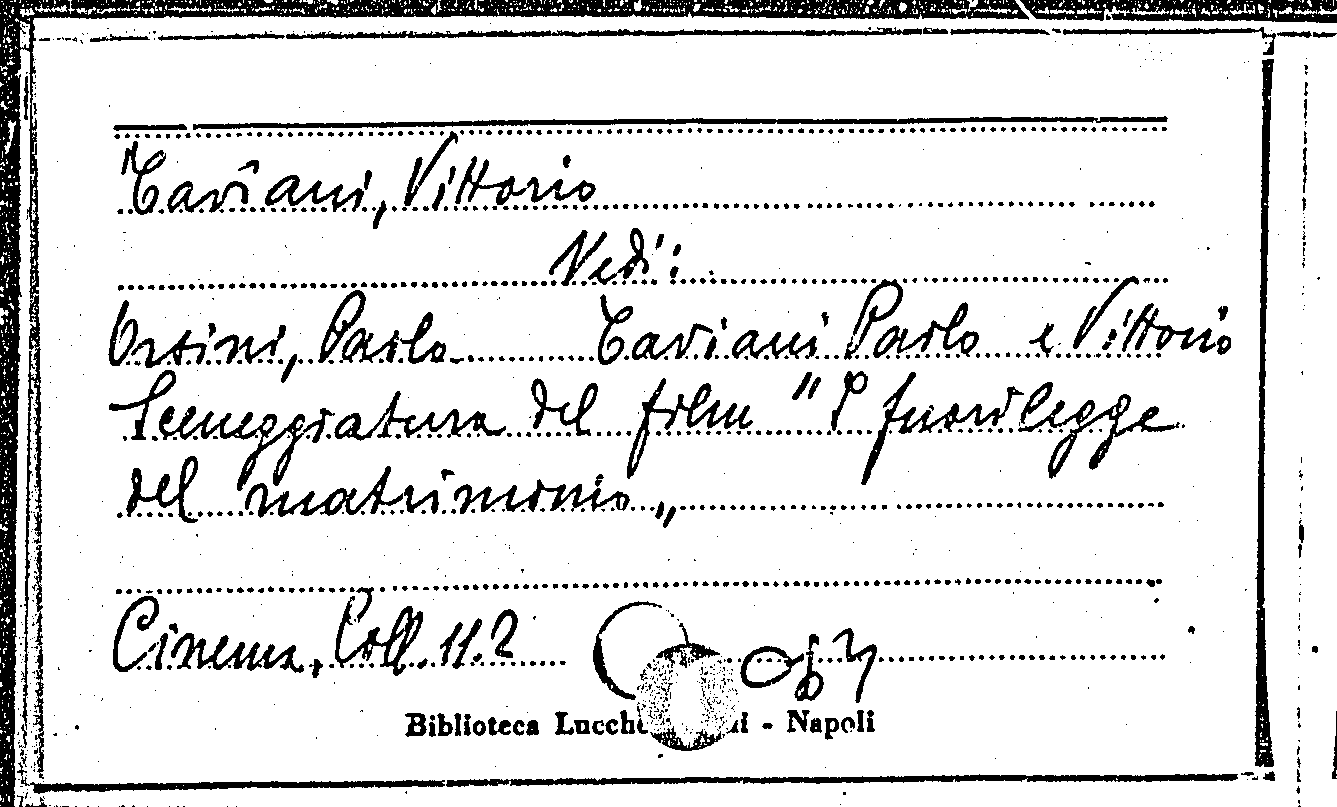 Taviani, Vittorio
Vedi:
Orsini, Paolo Taviani Paolo e Vittorio
Sceneggiatura del film "I fuorilegge
del matrimonio„
Cinema, Coll. 11.2
Biblioteca - Napoli